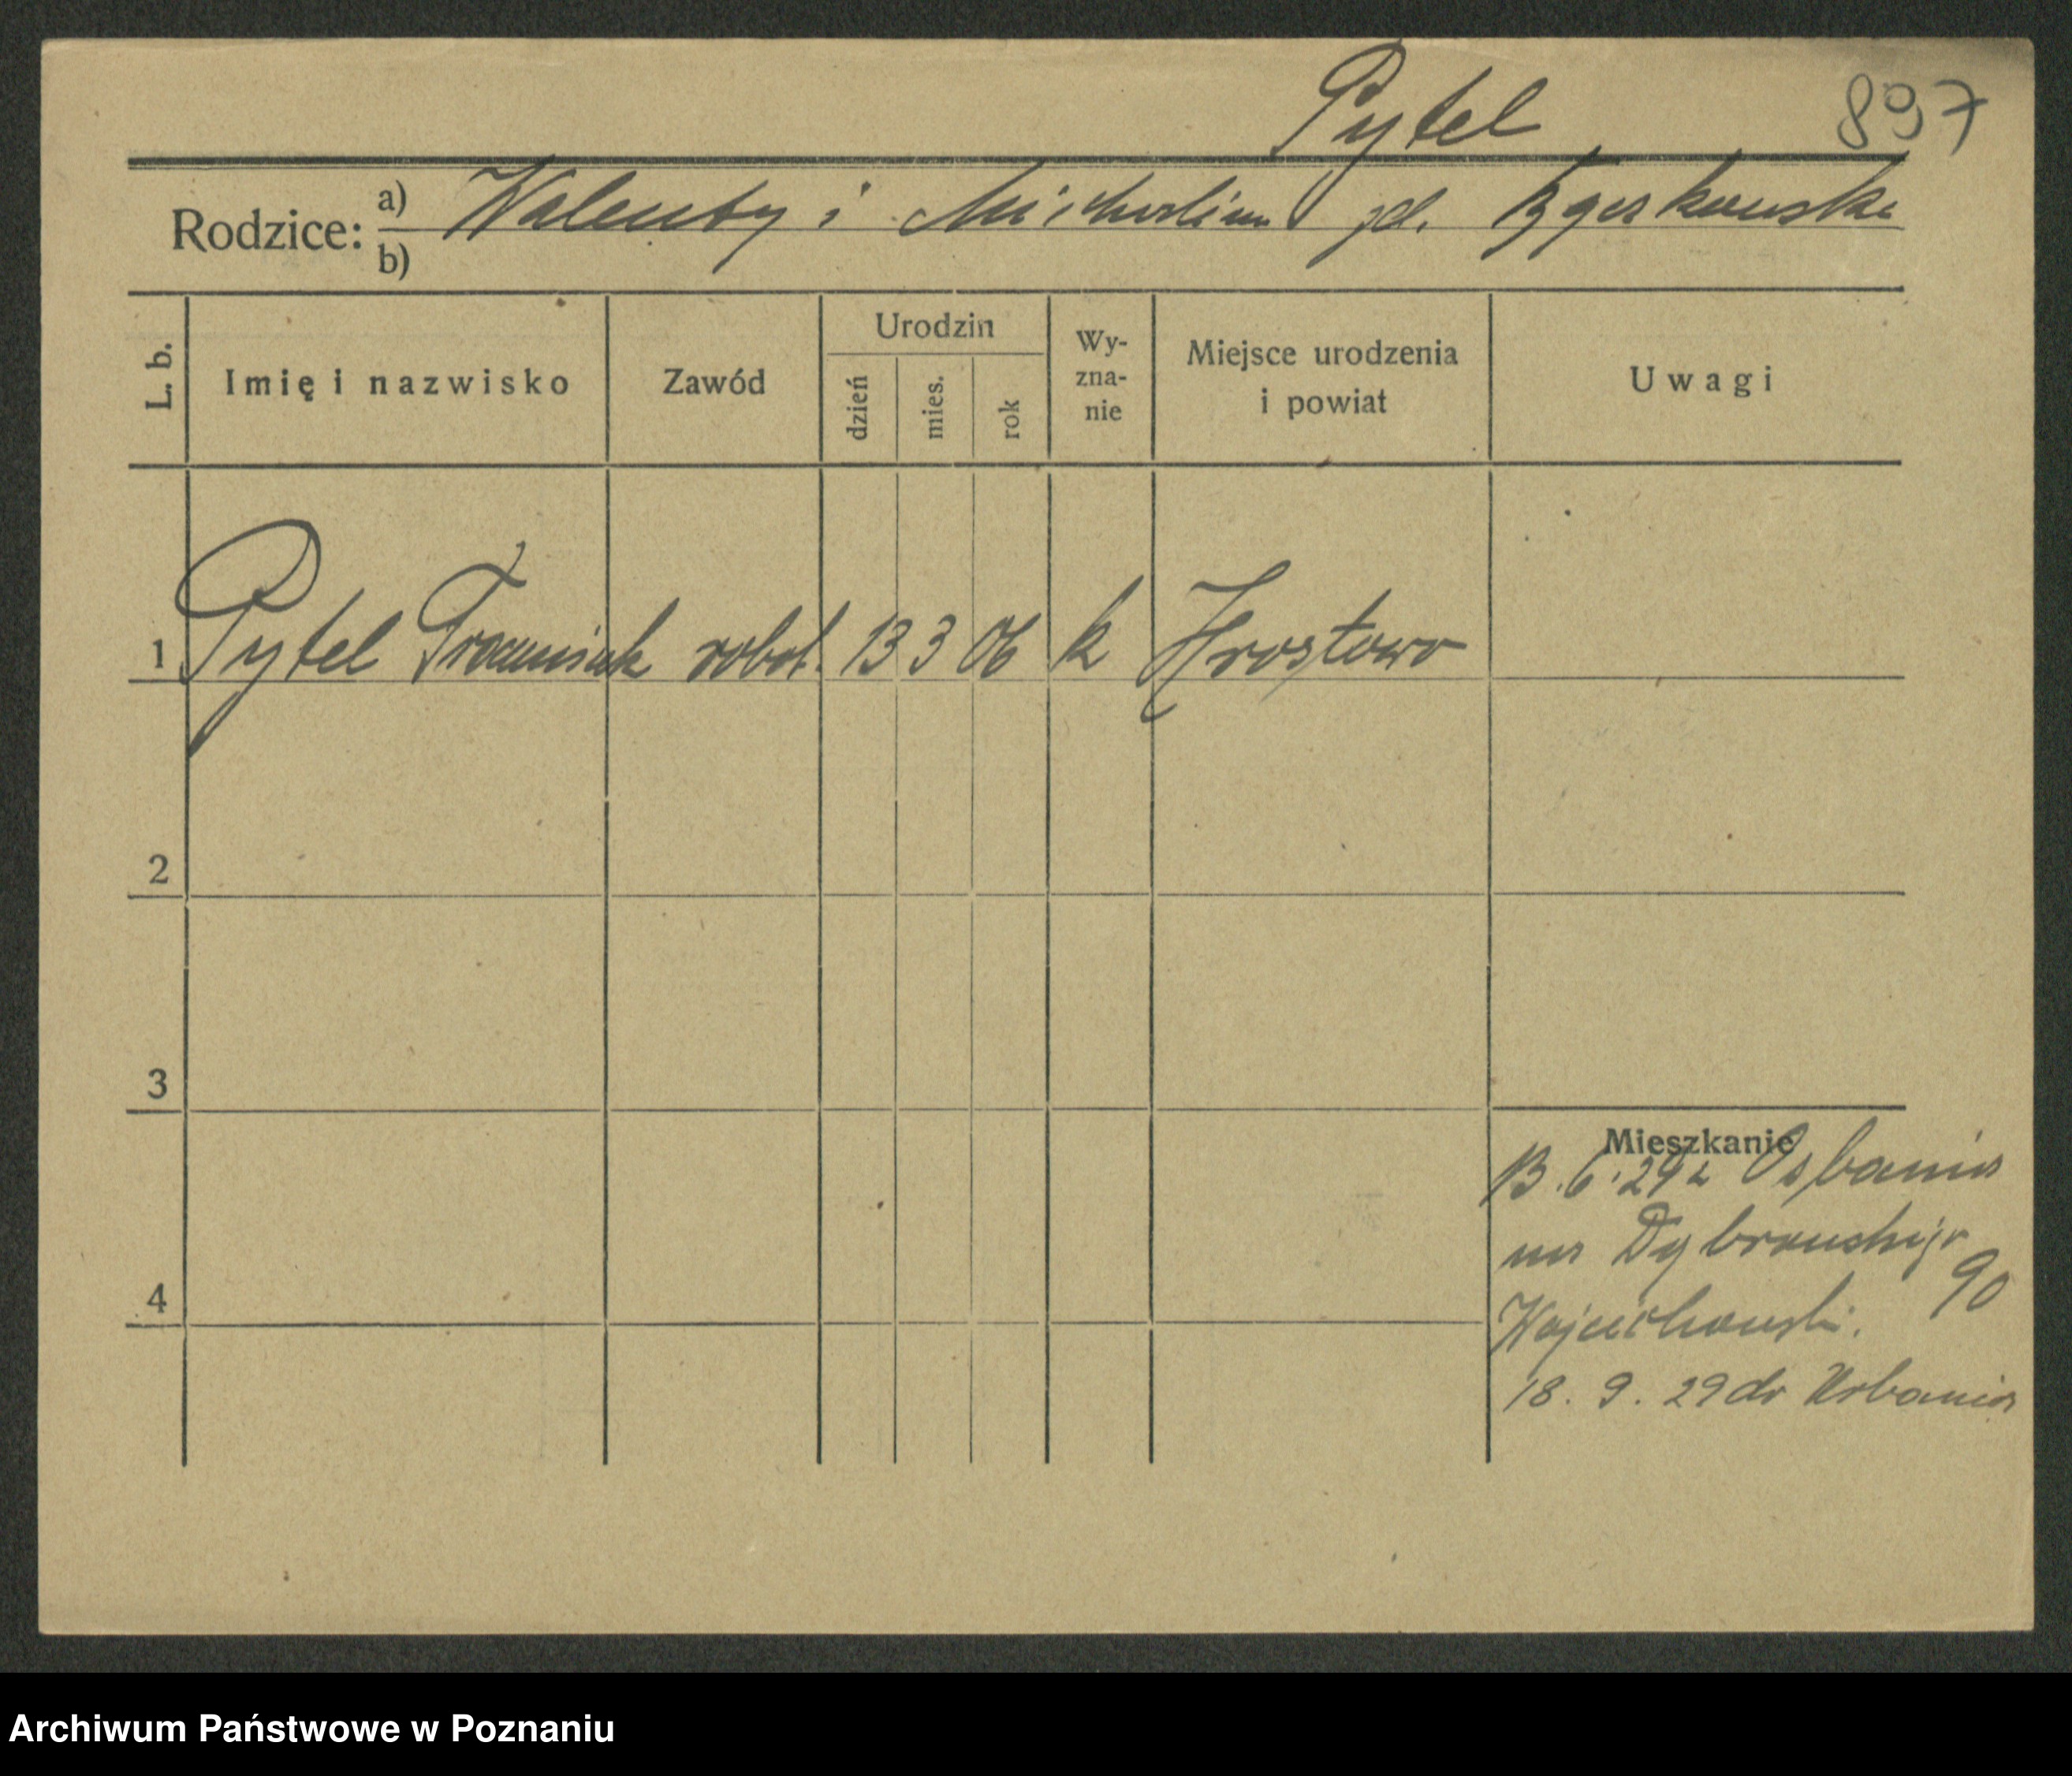 Pytel 897
Rodzice: a) Walenty i Michalina zd.
b)
L. b. Imię i nazwisko Zawód Urodzin dzień mies. rok Wy-zna-nie Miejsce urodzenia i powiat Uwagi
1 Pytel Franciszek robot. 13 3 06 k
2
3
4
Mieszkanie
13.6.29 z
na
90
Wojciechowski.
18. 9. 29 do Urbania
Archiwum Państwowe w Poznaniu